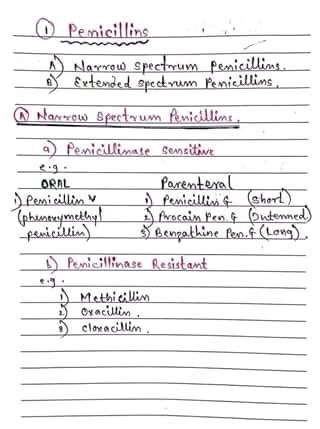 ① Penicillins
A) Narrow spectrum Penicillins.
B) Extended spectrum Penicillins.
Ⓐ Narrow Spectrum Penicillins.
a) Penicillinase Sensitive
e.g.
ORAL Parenteral
1) Penicillin V 1) Penicillin G (short)
(phenoxymethyl 2) Procain Pen. G (Intermed)
penicillin) 3) Benzathine Pen. G (Long).
b) Penicillinase Resistant
e.g.
1) Methicillin
2) Oxacillin.
3) cloxacillin.